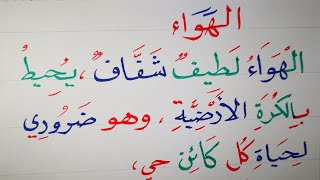 الهَوَاء
الْهَوَاءُ لَطِيفٌ شَفَّافٌ ، يُحِيطُ
بِالكُرَةِ الأَرْضِيَّةِ ، وهو ضَرُورِي
لِحَيَاةِ كُل كَائِن حي،